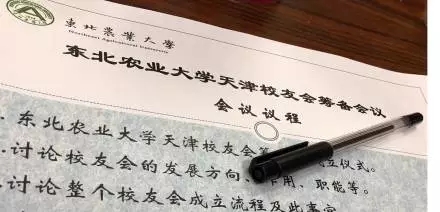 东北农业大学
Northeast Agricultural University
东北农业大学天津校友会筹备会议
会议议程
.东北农业大学天津校友会筹 立仪式。
.讨论校友会的发展方向 作用、职能等。
.讨论整个校友会成立流程及此事宜